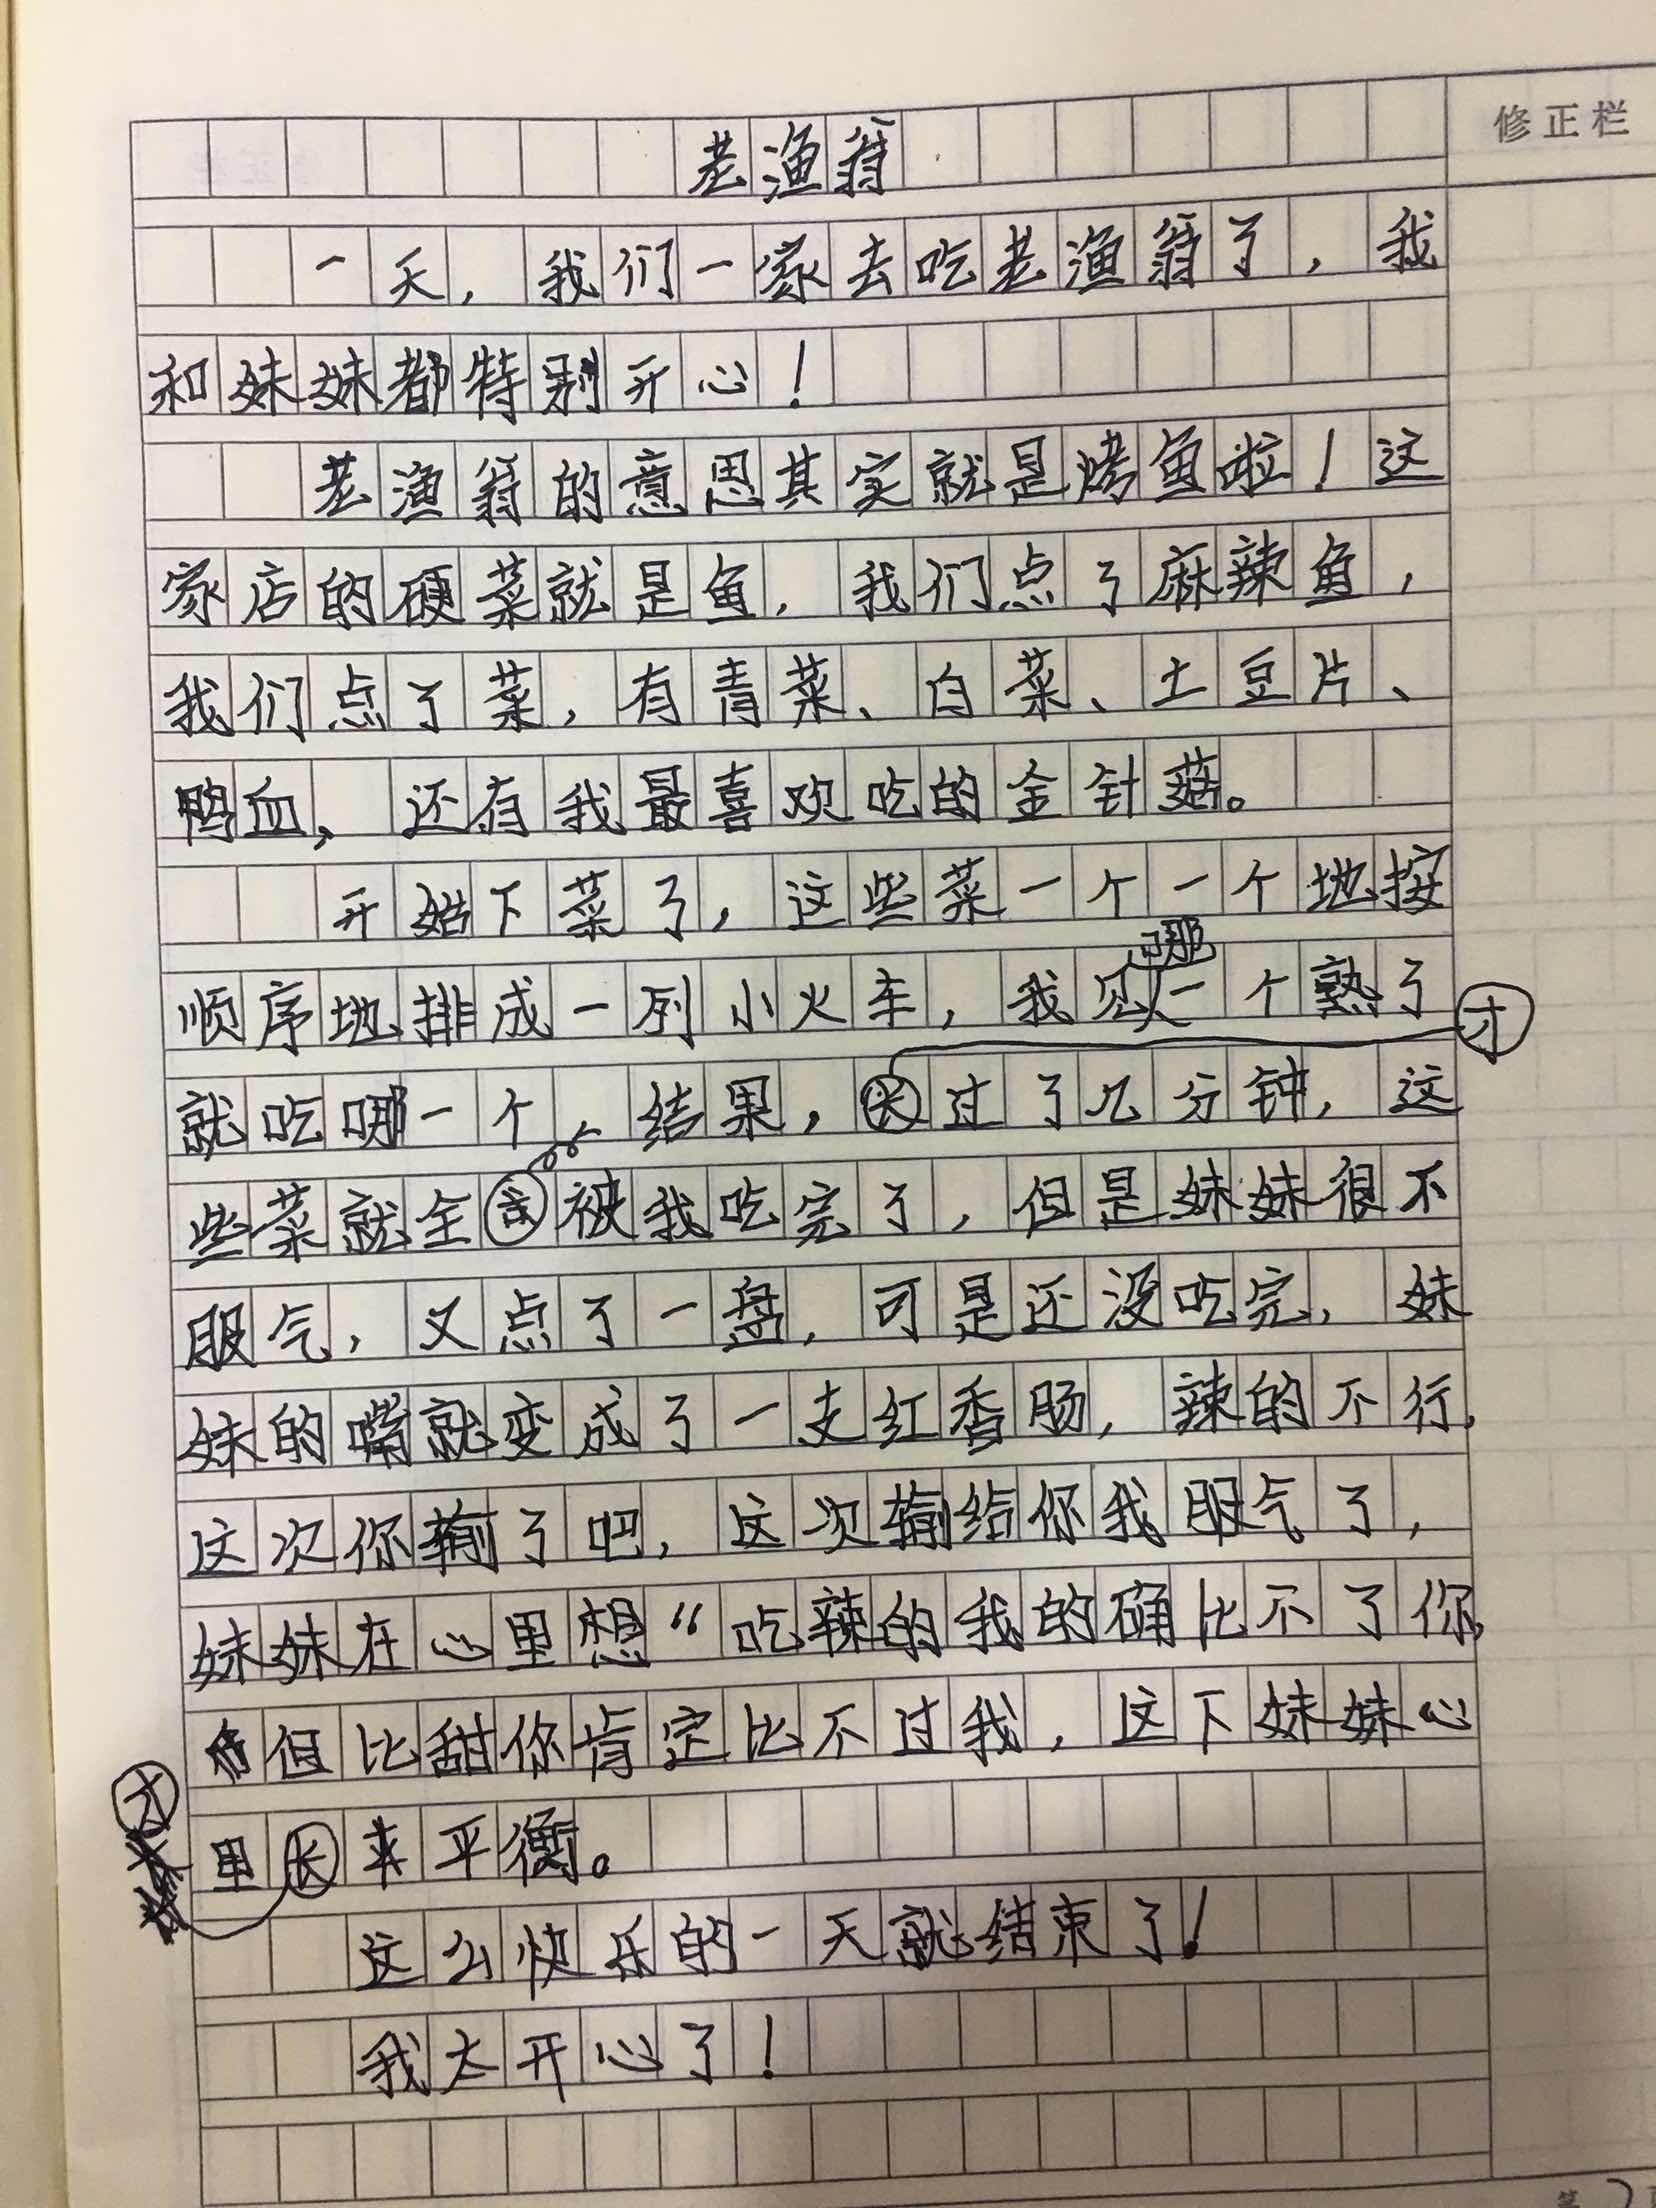 修正栏
老渔翁
一天，我们一家去吃老渔翁了，我
和妹妹都特别开心！
老渔翁的意思其实就是烤鱼啦！这
家店的硬菜就是鱼，我们点了麻辣鱼，
我们点了菜，有青菜、白菜、土豆片、
鸭血、还有我最喜欢吃的金针菇。
开始下菜了，这些菜一个一个地按
顺序地排成一列小火车，我见哪一个熟了
就吃哪一个，结果，才过了几分钟，这
些菜就全被我吃完了，但是妹妹很不
服气，又点了一盘，可是还没吃完，妹
妹的嘴就变成了一支红香肠，辣的不行，
这次你输了吧，这次输给你我服气了，
妹妹在心里想“吃辣的我的确比不了你，
但比甜你肯定比不过我，这下妹妹心
里才来平衡。
这么快乐的一天就结束了！
我太开心了！